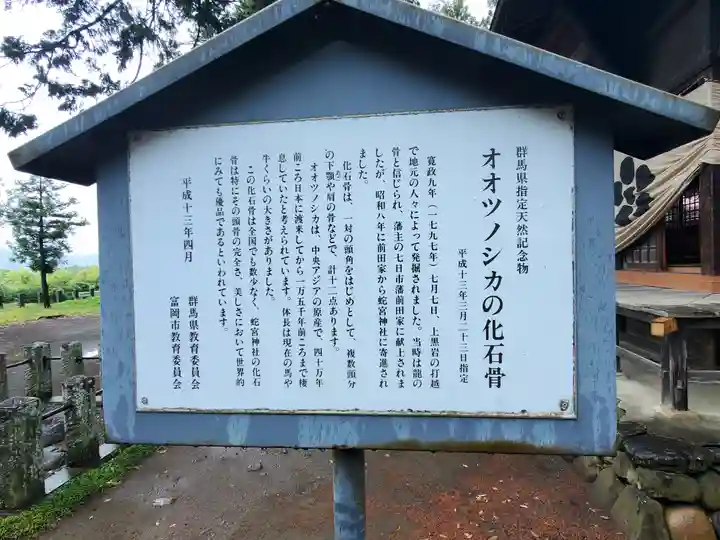 群馬県指定天然記念物
オオツノシカの化石骨
平成十三年三月二十三日指定
寛政九年（一七九七年）七月七日、上黒岩の打越
で地元の人々によって発掘されました。当時は龍の
骨と信じられ、藩主の七日市藩前田家に献上されま
したが、昭和八年に前田家から蛇宮神社に寄進され
ました。
化石骨は、一対の頭角をはじめとして、複数頭分
の下顎や肩の骨などで、計十二点あります。
オオツノシカは、中央アジアの原産で、四十万年
前ころ日本に渡来してから一万五千年前ころまで棲
息していたと考えられています。体長は現在の馬や
牛くらいの大きさがありました。
この化石骨は全国でも数少なく、蛇宮神社の化石
骨は特にその頭骨の完全さ、美しさにおいて世界的
にみても優品であるといわれています。
平成十三年四月
群馬県教育委員会
富岡市教育委員会